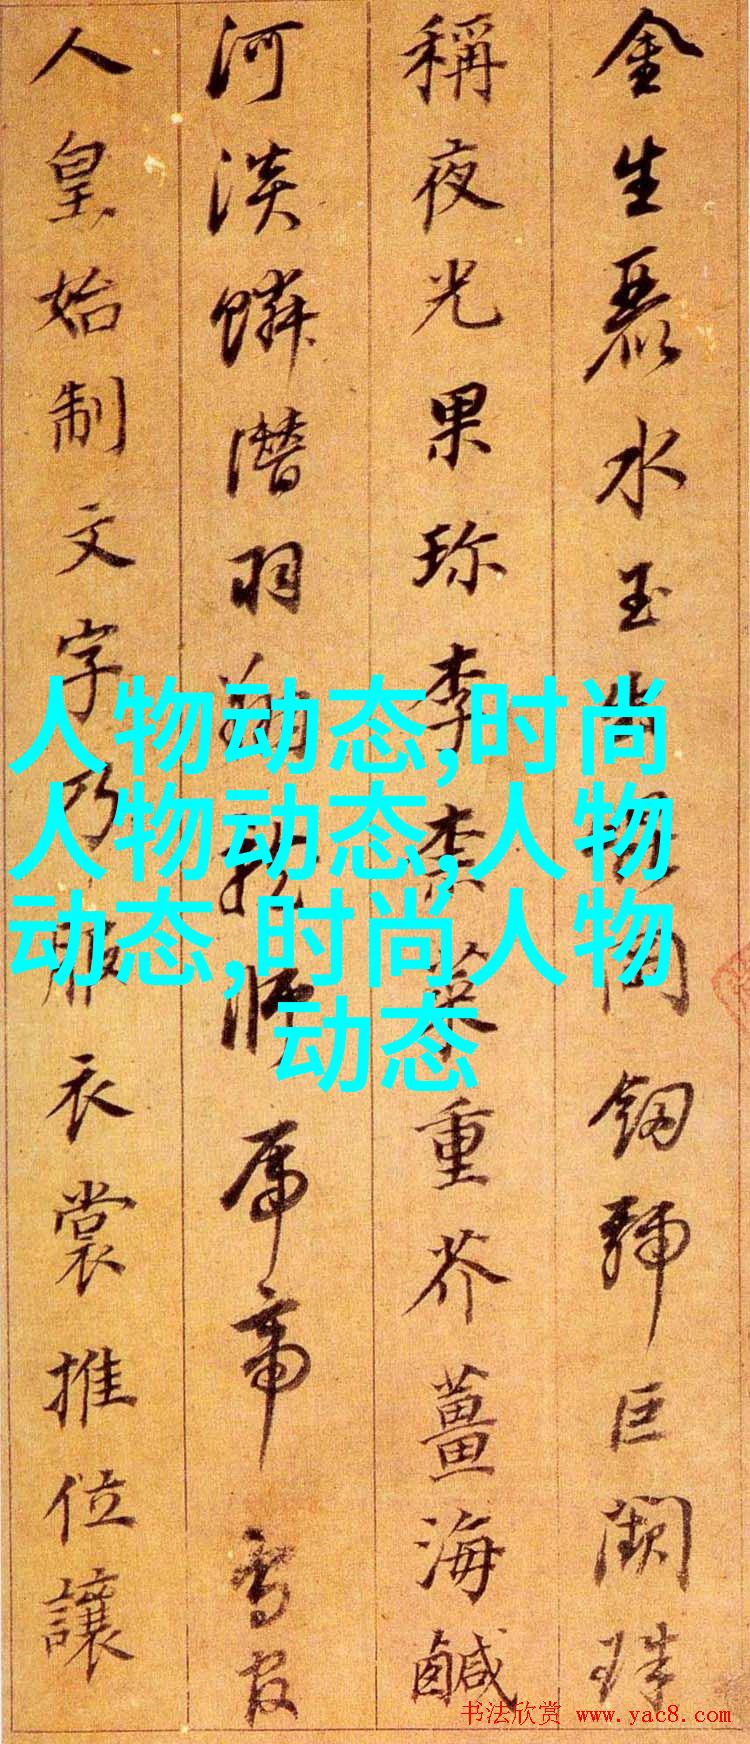 金生麗水玉出崑岡劒號巨闕珠
稱夜光果珎李柰菜重芥薑海鹹
河淡鱗潜羽翔龍師火帝鳥官
人皇始制文字乃服衣裳推位讓
人物动态,时尚
人物动态,人物
动态,时尚人物
动态
书法欣赏 www.yac8.com